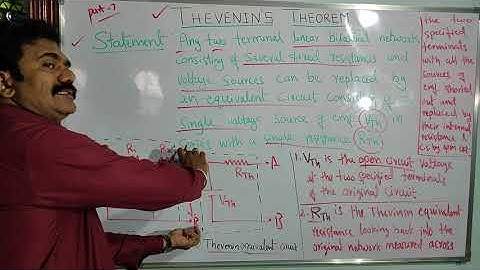 part-7
THEVENIN'S THEOREM
Statement
Any two terminal linear bilateral network
consisting of several fixed resistances and
voltage sources can be replaced by
an equivalent circuit consisting of
single voltage source of emf VTh in
with a single resistance RTh
A
RTh
VTh
B
R
Thevenin equivalent circuit
1. VTh is the open circuit voltage
at the two specified terminals
of the original circuit
2. RTh is the Thevinin equivalent
resistance looking back into the
original network measured across
the two
specified
terminals
with all the
sources of
emf shorted
out and
replaced by
their internal
resistance &
CS by open ckt